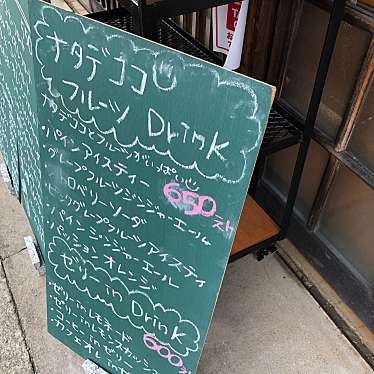 ナタデココ
フルーツ Drink
ナタデココとフルーツがいっぱい
パインアイスティー
650
グレープフルーツジンジャーエール
ソーダ
ピンクグレープフルーツアイスティ
パインジンジャーエール
パッションオレンジ
ゼリー in Drink
ゼリー in レモネード
ゼリー in
600
コーヒー in ゼリー
カフェオレ in